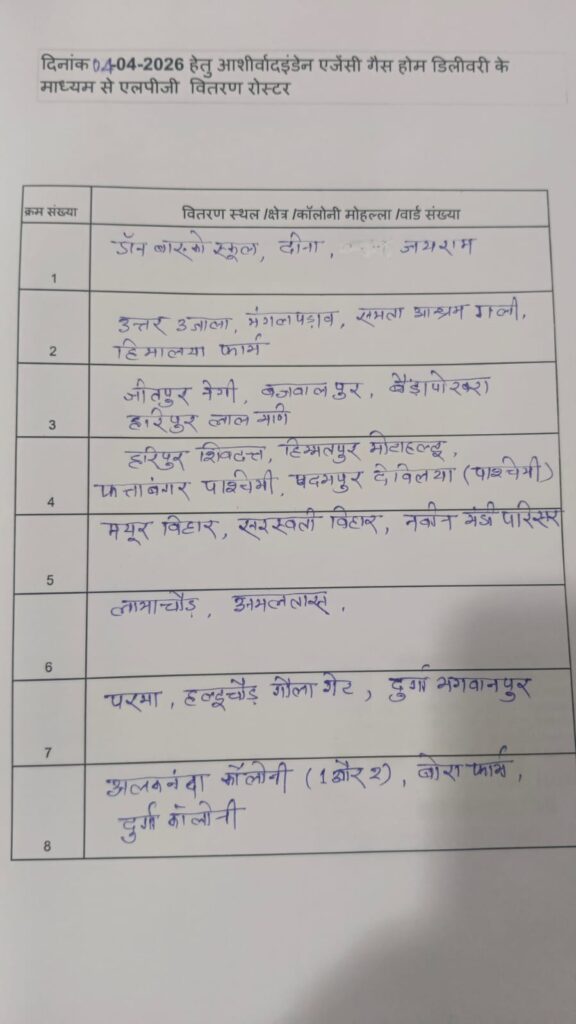 दिनांक 04-04-2026 हेतु आशीर्वादइंडेन एजेंसी गैस होम डिलीवरी के
माध्यम से एलपीजी वितरण रोस्टर
क्रम संख्या
वितरण स्थल /क्षेत्र /कॉलोनी मोहल्ला /वार्ड संख्या
1
डॉन बास्को स्कूल, दीना, जयराम
2
उत्तर उजाला, मंगलपड़ाव, समता आश्रम गली,
हिमालया फार्म
3
जीतपुर नेगी, बजवालपुर,
हरिपुर लाल मणि
4
हरिपुर शिवदत्त, हिम्मतपुर मोटाहल्दू,
फत्ताबंगर पाश्चिमी, पदमपुर देवलिया (पाश्चिमी)
5
मयूर विहार, सरस्वती विहार, नवीन मंडी परिसर
6
लामाचौड़, अमलतास,
7
परमा, हल्दूचौड़ गौला गेट, दुर्गा भगवानपुर
8
अलकनंदा कॉलोनी (1 और 2), बोरा फार्म,
दुर्गा कॉलोनी